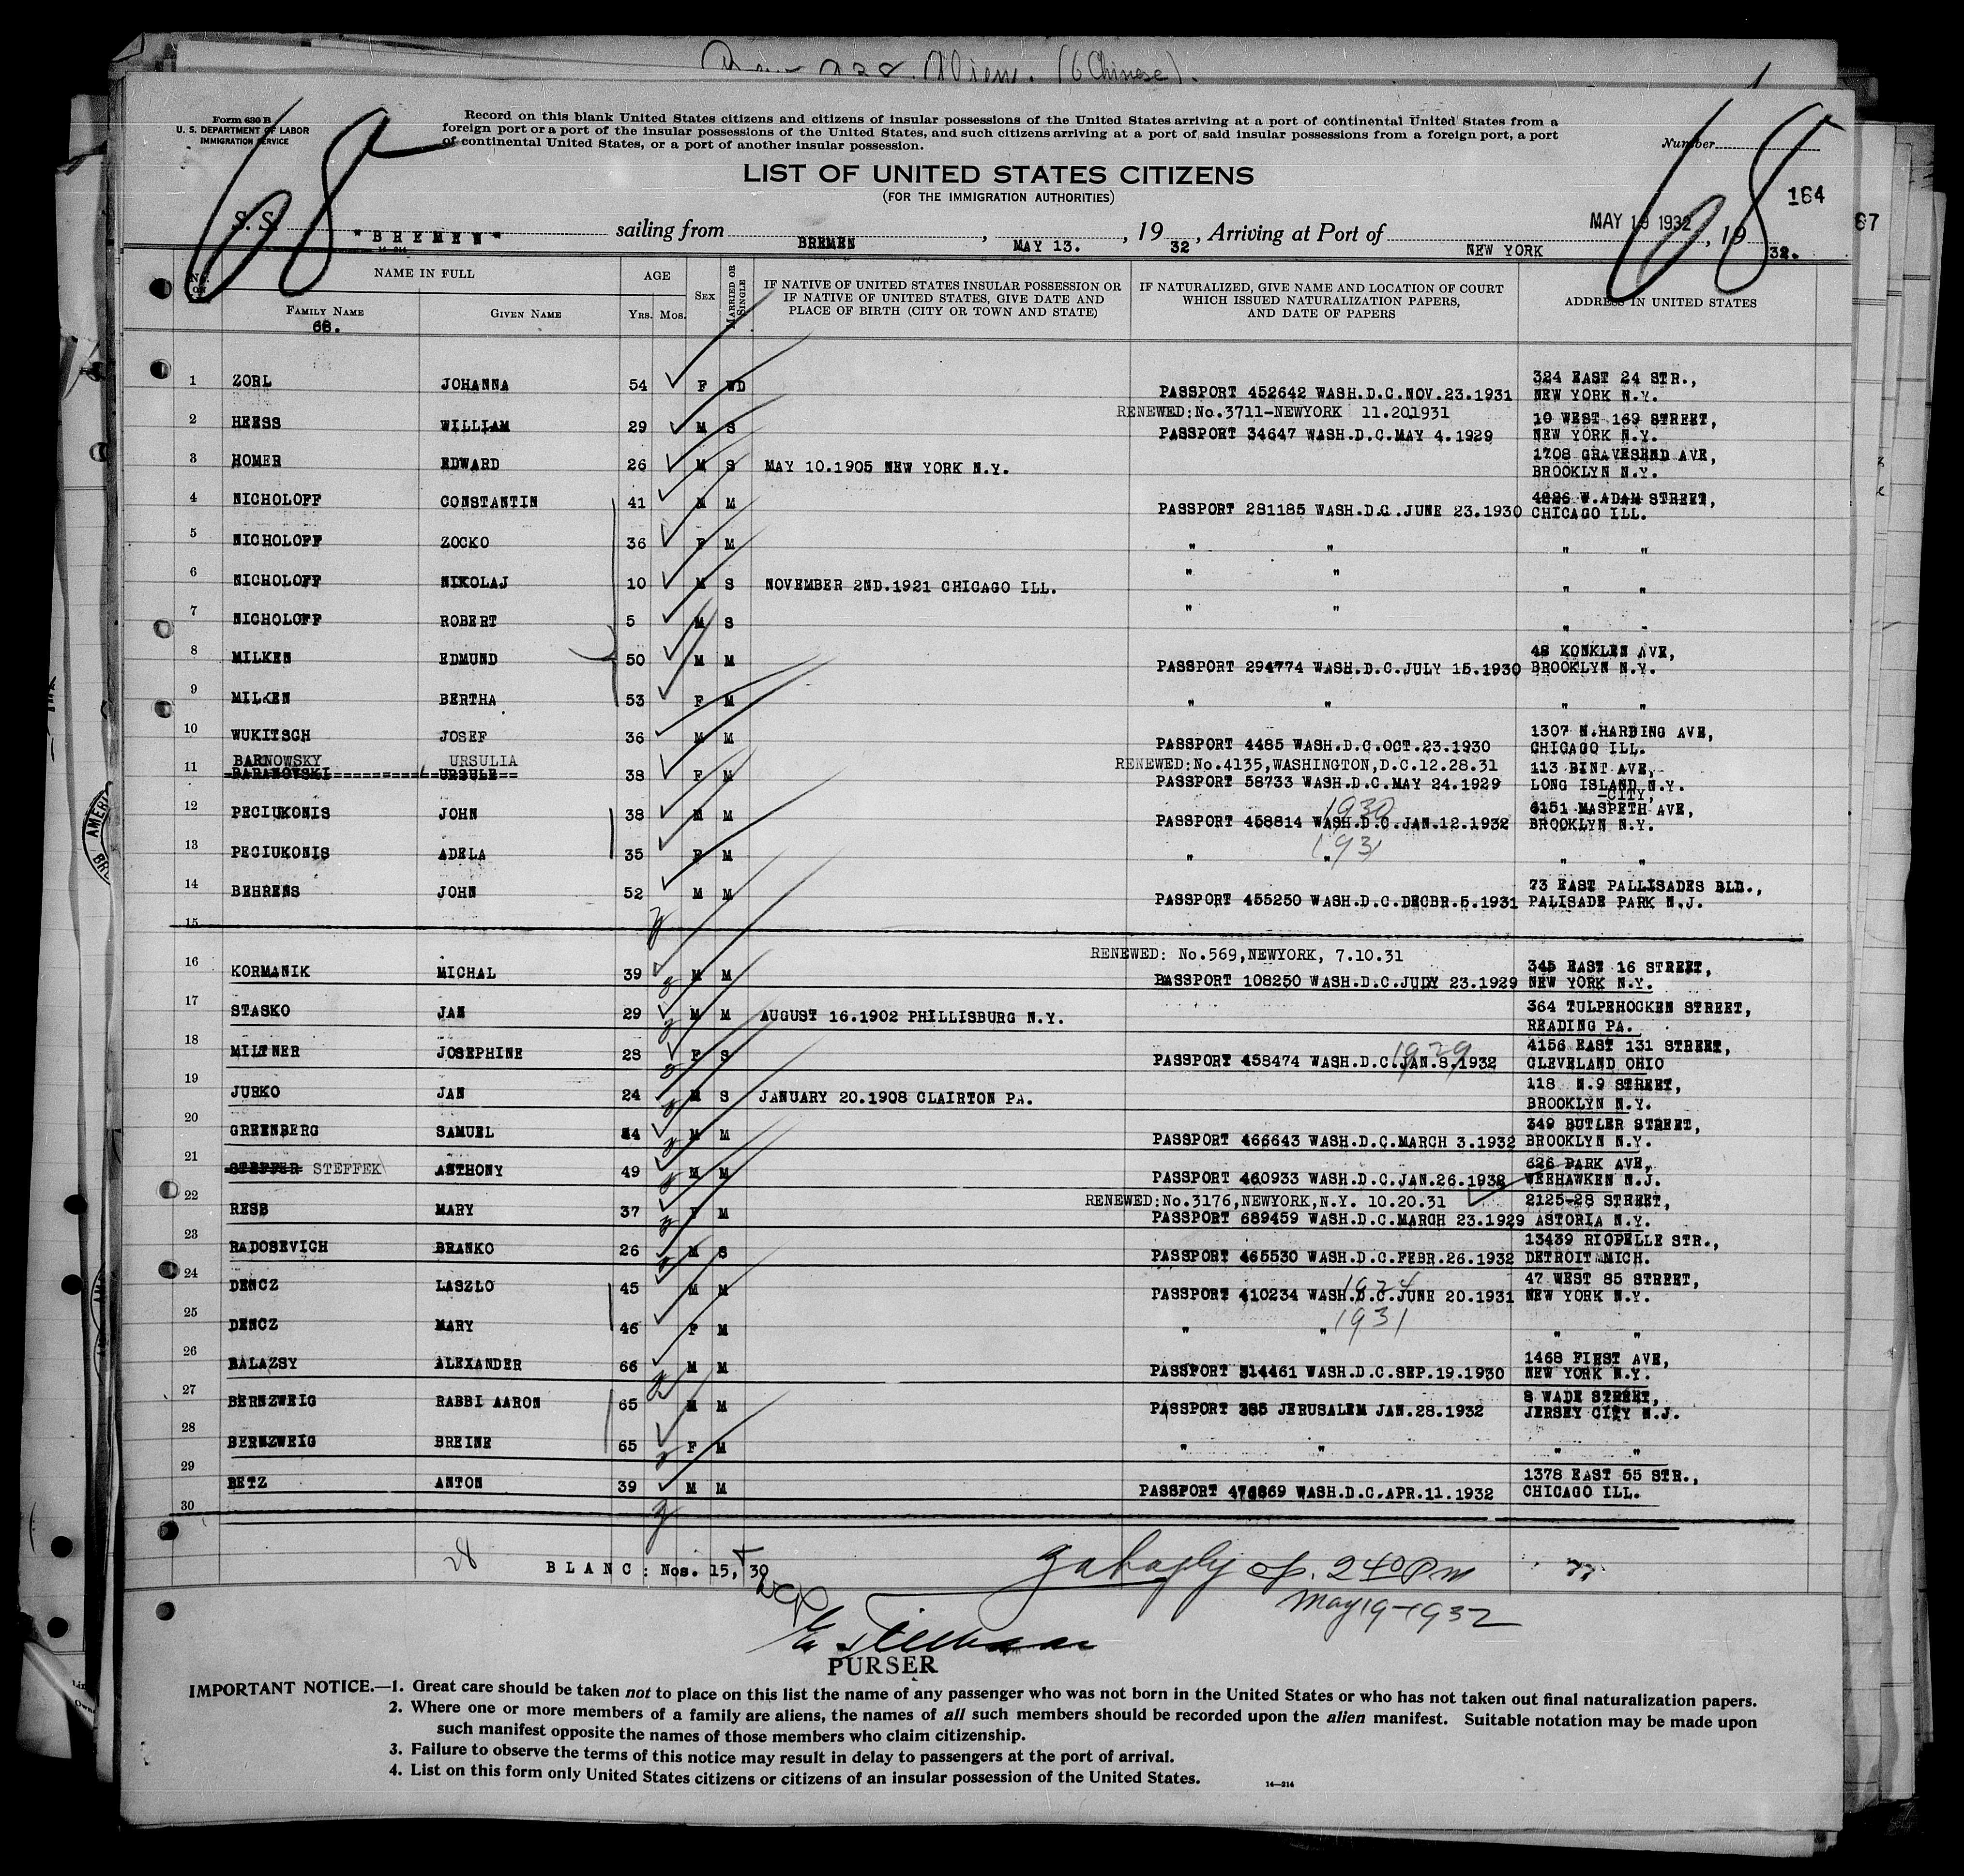 (6 Chinese).
Form 630 B
U. S. DEPARTMENT OF LABOR
IMMIGRATION SERVICE
Record on this blank United States citizens and citizens of insular possessions of the United States arriving at a port of continental United States from a
foreign port or a port of the insular possessions of the United States, and such citizens arriving at a port of said insular possessions from a foreign port, a port
of continental United States, or a port of another insular possession.
Number
68
68
164
67
LIST OF UNITED STATES CITIZENS
(FOR THE IMMIGRATION AUTHORITIES)
S. S. "BREMEN" sailing from BREMEN, MAY 13., 1932, Arriving at Port of NEW YORK MAY 19 1932, 1932.
14-214
NAME IN FULL AGE SEX MARRIED OR SINGLE IF NATIVE OF UNITED STATES INSULAR POSSESSION OR IF NATIVE OF UNITED STATES, GIVE DATE AND PLACE OF BIRTH (CITY OR TOWN AND STATE) IF NATURALIZED, GIVE NAME AND LOCATION OF COURT WHICH ISSUED NATURALIZATION PAPERS, AND DATE OF PAPERS ADDRESS IN UNITED STATES
FAMILY NAME GIVEN NAME YRS. MOS.
68.
1 ZORL JOHANNA 54 F WD PASSPORT 452642 WASH.D.C.NOV.23.1931 324 EAST 24 STR., NEW YORK N.Y.
RENEWED:No.3711-NEWYORK 11.201931
2 HEESS WILLIAM 29 M S PASSPORT 34647 WASH.D.C.MAY 4.1929 10 WEST 169 STREET, NEW YORK N.Y.
3 HOMER EDWARD 26 M S MAY 10.1905 NEW YORK N.Y. 1708 GRAVESEND AVE, BROOKLYN N.Y.
4 NICHOLOFF CONSTANTIN 41 M M PASSPORT 281185 WASH.D.C.JUNE 23.1930 4826 W.ADAM STREET, CHICAGO ILL.
5 NICHOLOFF ZOCKO 36 F M " " " "
6 NICHOLOFF NIKOLAJ 10 M S NOVEMBER 2ND.1921 CHICAGO ILL. " " " "
7 NICHOLOFF ROBERT 5 M S " " " "
8 MILKEN EDMUND 50 M M PASSPORT 294774 WASH.D.C.JULY 15.1930 48 KONKLEN AVE, BROOKLYN N.Y.
9 MILKEN BERTHA 53 F M " " " "
10 WUKITSCH JOSEF 36 M M PASSPORT 4485 WASH.D.C.OCT.23.1930 1307 N.HARDING AVE, CHICAGO ILL.
BARNOWSKY URSULIA RENEWED:No.4135,WASHINGTON,D.C.12.28.31
11 BARANOWSKI URSULE 38 F M PASSPORT 58733 WASH.D.C.MAY 24.1929 113 BINT AVE, LONG ISLAND N.Y.
-CITY,
12 PECIUKONIS JOHN 38 M M PASSPORT 458814 WASH.D.C.JAN.12.1932 1930 6151 MASPETH AVE, BROOKLYN N.Y.
13 PECIUKONIS ADELA 35 F M " " 1931 " "
14 BEHRENS JOHN 52 M M PASSPORT 455250 WASH.D.C.DECBR.5.1931 73 EAST PALLISADES BLD., PALISADE PARK N.J.
15
RENEWED: No.569,NEWYORK, 7.10.31
16 KORMANIK MICHAL 39 M M PASSPORT 108250 WASH.D.C.JULY 23.1929 345 EAST 16 STREET, NEW YORK N.Y.
17 STASKO JAN 29 M M AUGUST 16.1902 PHILLISBURG N.Y. 364 TULPEHOCKEN STREET, READING PA.
18 MILTNER JOSEPHINE 28 F S PASSPORT 458474 WASH.D.C.JAN.8,1932 1929 4156 EAST 131 STREET, CLEVELAND OHIO
19 JURKO JAN 24 M S JANUARY 20.1908 CLAIRTON PA. 118 N.9 STREET, BROOKLYN N.Y.
20 GREENBERG SAMUEL 44 M M PASSPORT 466643 WASH.D.C.MARCH 3.1932 349 BUTLER STREET, BROOKLYN N.Y.
21 STEFFER STEFFEK ANTHONY 49 M M PASSPORT 460933 WASH.D.C.JAN.26.1932 626 PARK AVE, WEEHAWKEN N.J.
RENEWED:No.3176,NEWYORK,N.Y. 10.20.31
22 RESB MARY 37 F M PASSPORT 689459 WASH.D.C.MARCH 23.1929 2125-28 STREET, ASTORIA N.Y.
23 RADOSEVICH BRANKO 26 M S PASSPORT 465530 WASH.D.C.FEBR.26.1932 13439 RIOPELLE STR., DETROIT MICH.
24 DENCZ LASZLO 45 M M PASSPORT 410234 WASH.D.C.JUNE 20.1931 1924 47 WEST 85 STREET, NEW YORK N.Y.
25 DENCZ MARY 46 F M " " 1931 " "
26 BALAZSY ALEXANDER 66 M M PASSPORT 314461 WASH.D.C.SEP.19.1930 1468 FIRST AVE, NEW YORK N.Y.
27 BERNZWEIG RABBI AARON 65 M M PASSPORT 385 JERUSALEM JAN.28.1932 8 WADE STREET, JERSEY CITY N.J.
28 BERNZWEIG BREINE 65 F M " " " "
29 BETZ ANTON 39 M M PASSPORT 476869 WASH.D.C.APR.11.1932 1378 EAST 55 STR., CHICAGO ILL.
30
28 BLANC: Nos. 15, + 30
op. 240 Pm
May 19-1932
PURSER
IMPORTANT NOTICE.—1. Great care should be taken not to place on this list the name of any passenger who was not born in the United States or who has not taken out final naturalization papers.
2. Where one or more members of a family are aliens, the names of all such members should be recorded upon the alien manifest. Suitable notation may be made upon
such manifest opposite the names of those members who claim citizenship.
3. Failure to observe the terms of this notice may result in delay to passengers at the port of arrival.
4. List on this form only United States citizens or citizens of an insular possession of the United States.
14-214